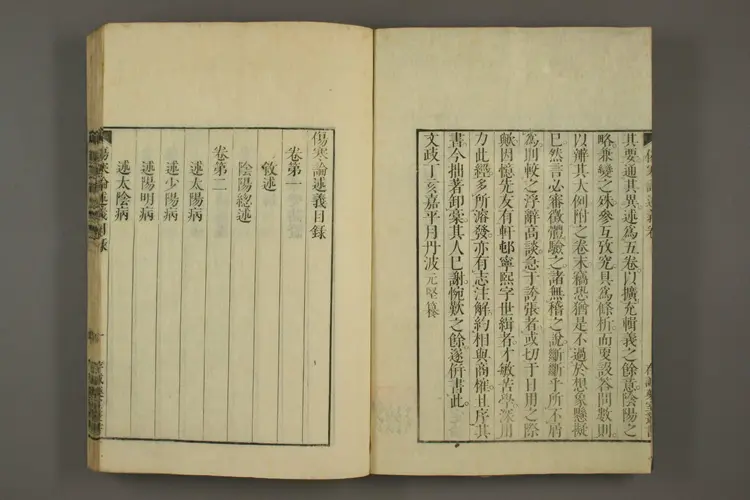 其要通其異述爲五卷以擴充輯義之餘意陰陽之
略兼變之殊參互攷究具爲條析而更設答問數則
以辨其大例附之卷末竊恐猶是不過於想象懸擬
已然言必審徵體驗之諸無稽之說斷斷乎所不屑
爲則較之浮辭高談急于誇張者或切于日用之際
歟因憶先友有軒邨寧熙字世緝者才敏苦學深用
力此經多所溶發亦有志注解約相與商榷且序其
書今拙著卸稾其人已謝惋歎之餘遂併書此
文政丁亥嘉平月丹波元堅識
傷寒論述義目錄
卷第一
敘述
陰陽總述
卷第二
述太陽病
述少陽病
述陽明病
述太陰病
傷寒論述義目錄